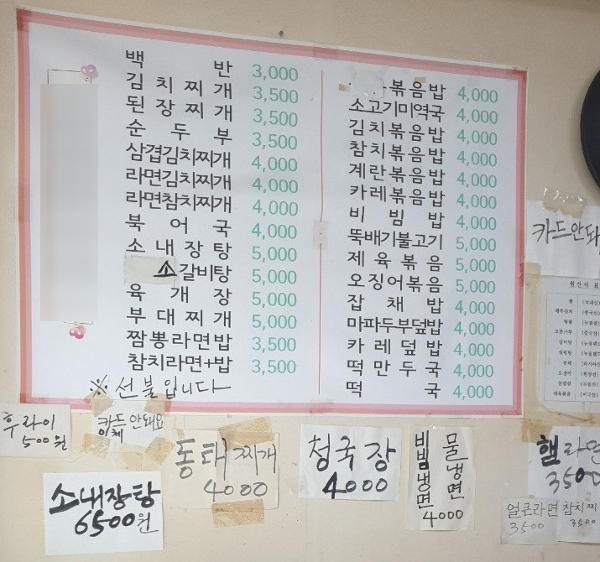 백반 3,000
김치찌개 3,500
된장찌개 3,500
순두부 3,500
삼겹김치찌개 4,000
라면김치찌개 4,000
라면참치찌개 4,000
북어국 4,000
소내장탕 5,000
소갈비탕 5,000
육개장 5,000
부대찌개 5,000
짬뽕라면밥 3,500
참치라면+밥 3,500
※선불입니다
볶음밥 4,000
소고기미역국 4,000
김치볶음밥 4,000
참치볶음밥 4,000
계란볶음밥 4,000
카레볶음밥 4,000
비빔밥 4,000
뚝배기불고기 5,000
제육볶음 5,000
오징어볶음 5,000
잡채밥 4,000
마파두부덮밥 4,000
카레덮밥 4,000
떡만두국 4,000
떡국 4,000
카드안돼
원산지 표
후라이
500원
카드 안돼요
이체
동태찌개
4000
청국장
4000
물냉면
비빔냉면
4000
소내장탕
6500원
햄라면
3500
얼큰라면
3500
참치찌
3500